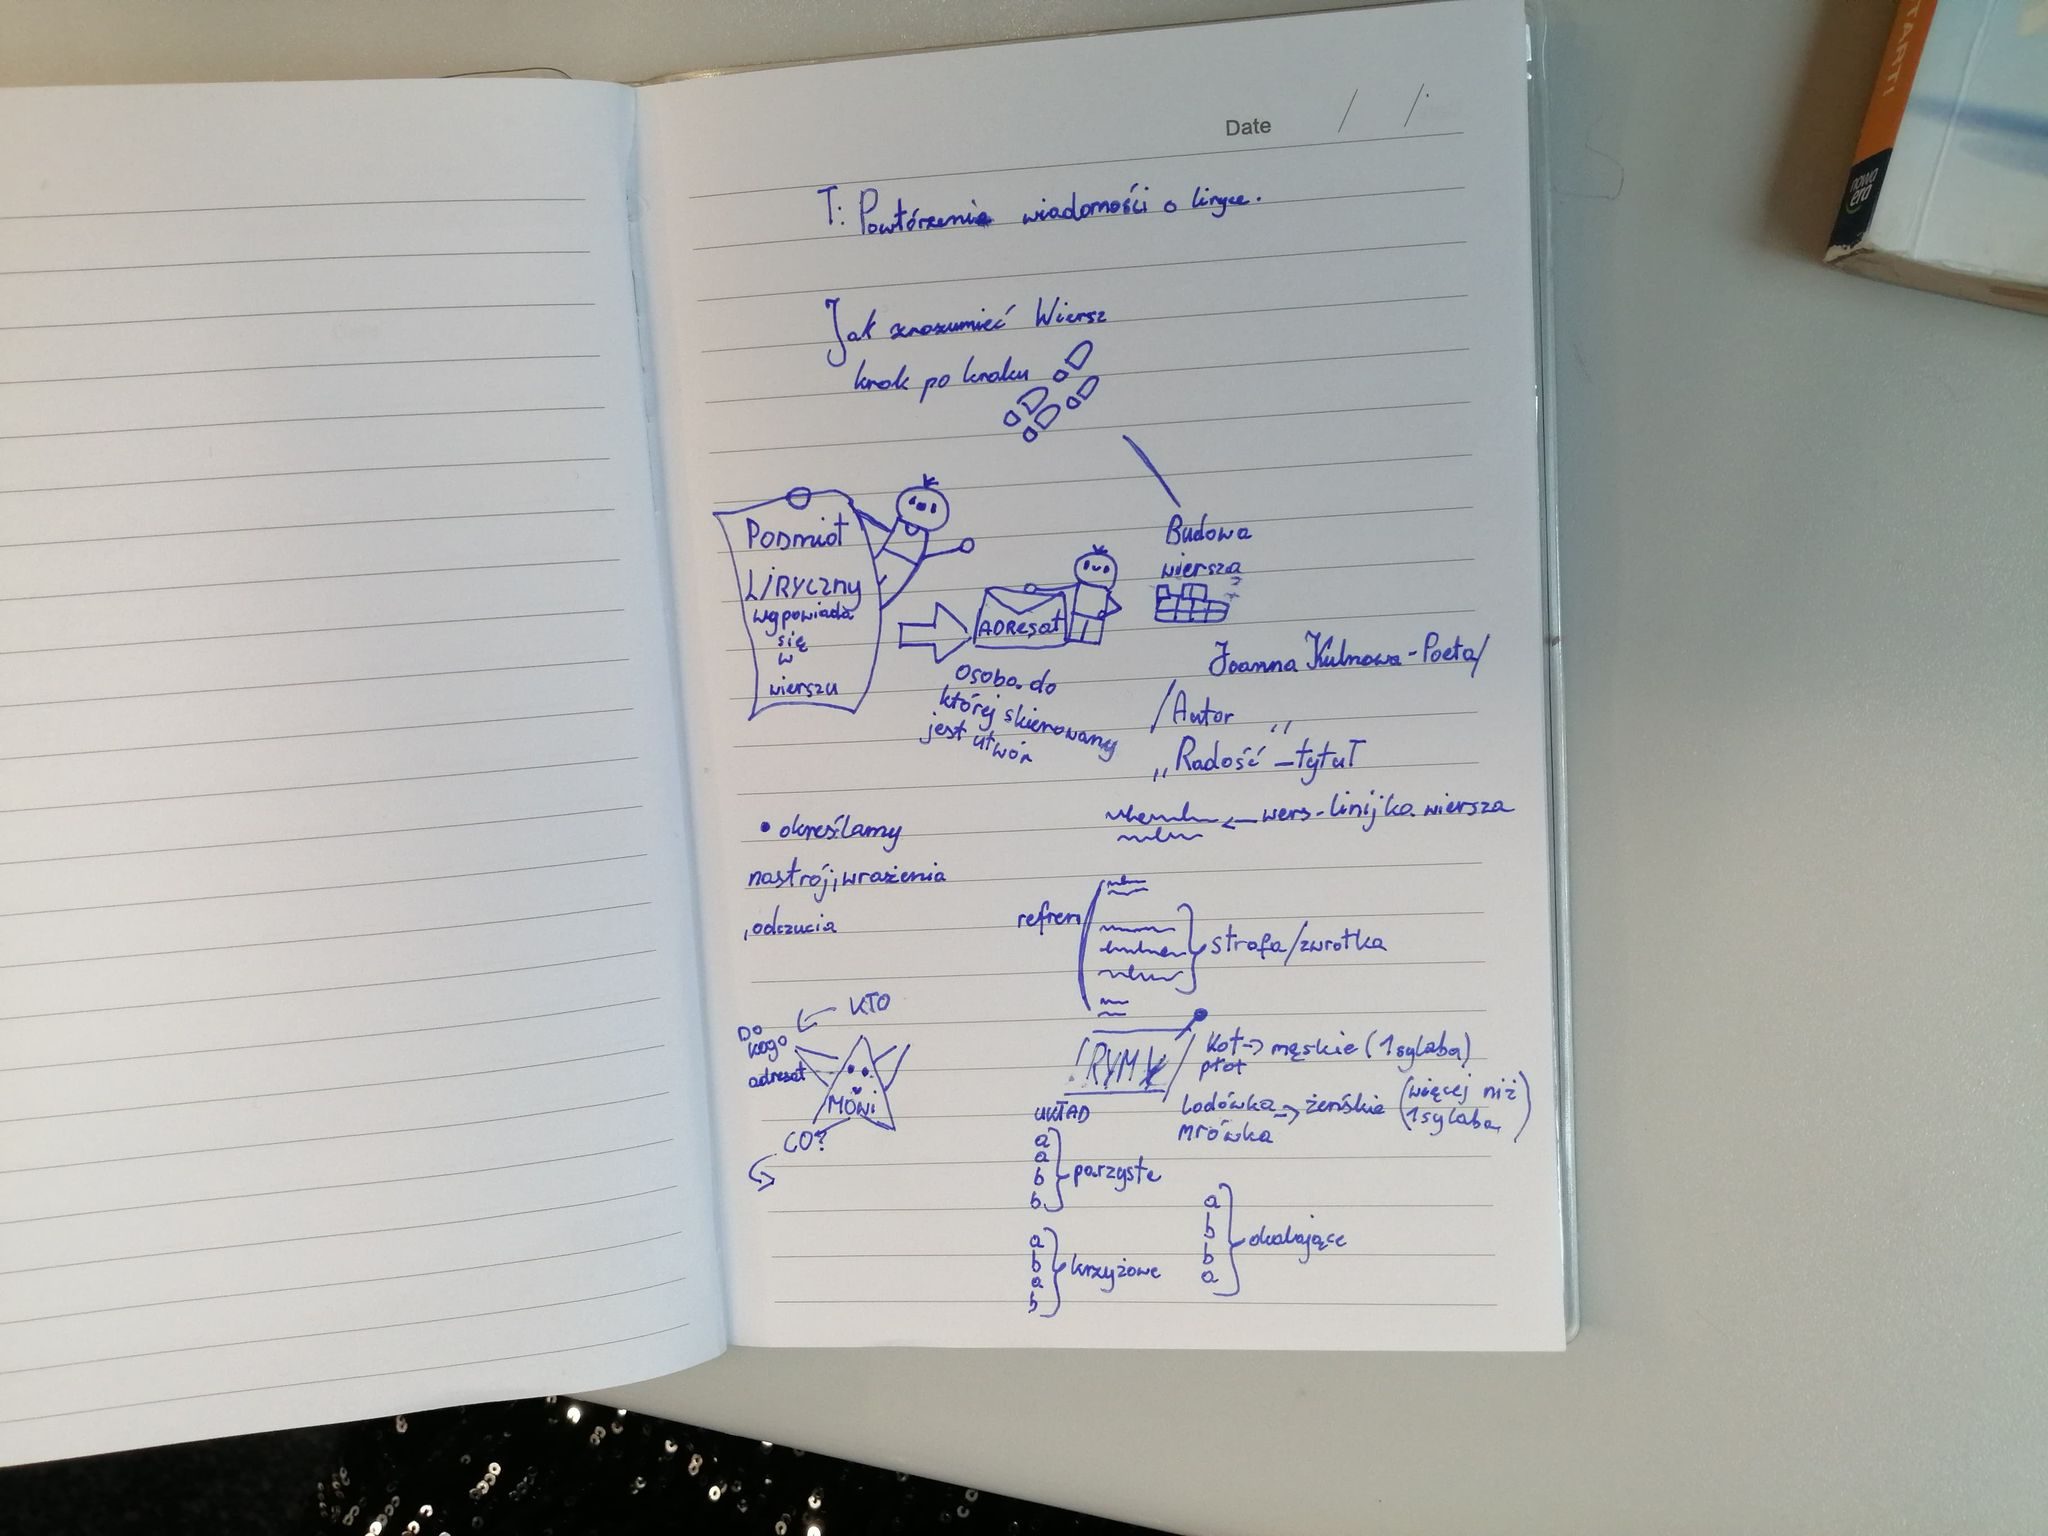 Date / /
T: Powtórzenie wiadomości o liryce.
Jak zrozumieć Wiersz
krok po kroku
Podmiot
LiRyczny
wypowiada
się
w
wierszu
ADResat
Osoba do
której skierowany
jest utwór
• określamy
nastrój, wrażenia
, odczucia
KTO
Do
kogo
adresat
Mówi
CO?
Budowa
wiersza
Joanna Kulmowa - Poeta/
/Autor
„Radość" - tytuł
wers - linijka wiersza
refren
strofa/zwrotka
RYMY
Kot -> męskie (1 sylaba)
płot
Lodówka -> żeńskie (więcej niż
mrówka 1 sylaba)
UKŁAD
a
a
b
b
parzyste
a
b
a
b
krzyżowe
a
b
b
a
okalające
TART!
nowa
era